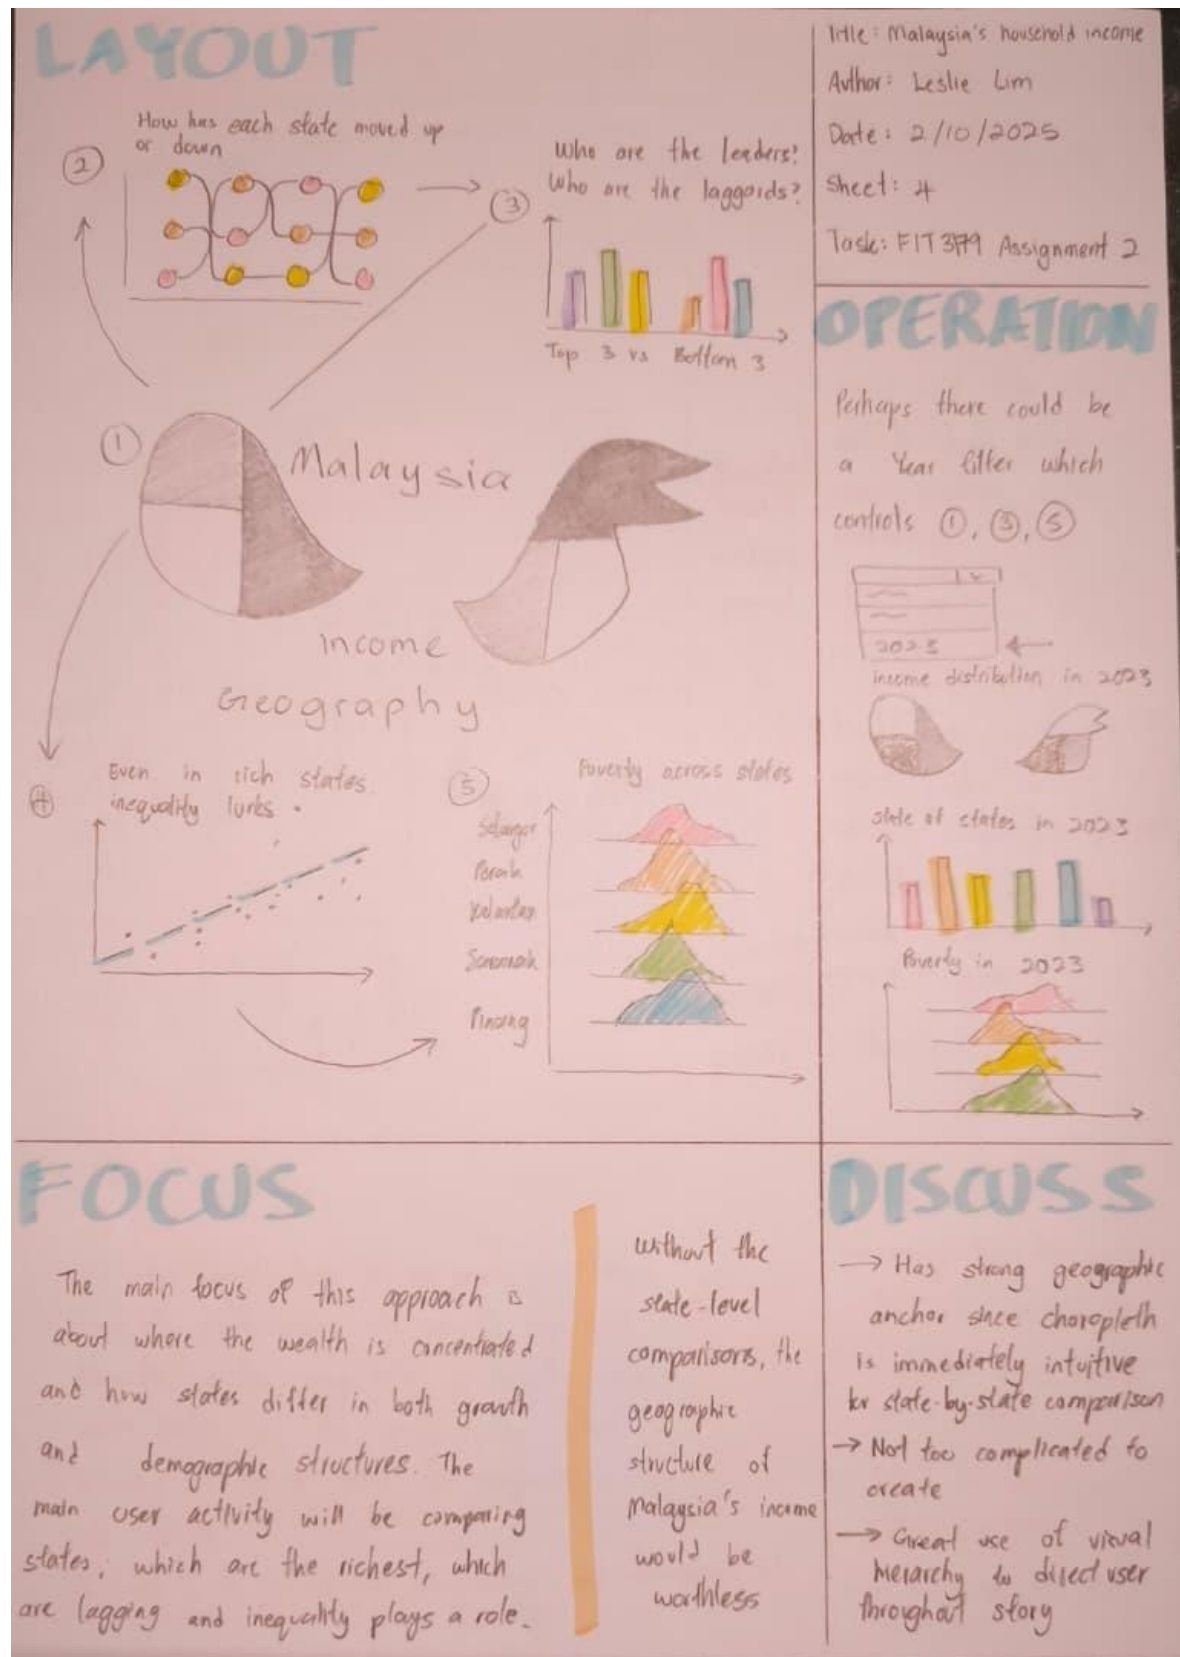 LAYOUT
How has each state moved up
or down
2
3
Who are the leaders?
Who are the laggards?
Top 3 vs Bottom 3
1
Malaysia
income
Geography
4
Even in rich states
inequality lurks.
5
Poverty across states
Selangor
Perak
Kelantan
Sarawak
Pinang
Title: Malaysia's household income
Author: Leslie Lim
Date: 2/10/2025
Sheet: 4
Task: FIT3179 Assignment 2
OPERATION
Perhaps there could be
a Year filter which
controls 1, 3, 5
2023
income distribution in 2023
state of states in 2023
Poverty in 2023
FOCUS
The main focus of this approach is
about where the wealth is concentrated
and how states differ in both growth
and demographic structures. The
main user activity will be comparing
states, which are the richest, which
are lagging and inequality plays a role.
without the
state-level
comparisons, the
geographic
structure of
Malaysia's income
would be
worthless
DISCUSS
→ Has strong geographic
anchor since choropleth
is immediately intuitive
for state-by-state comparison
→ Not too complicated to
create
→ Great use of visual
hierarchy to direct user
throughout story